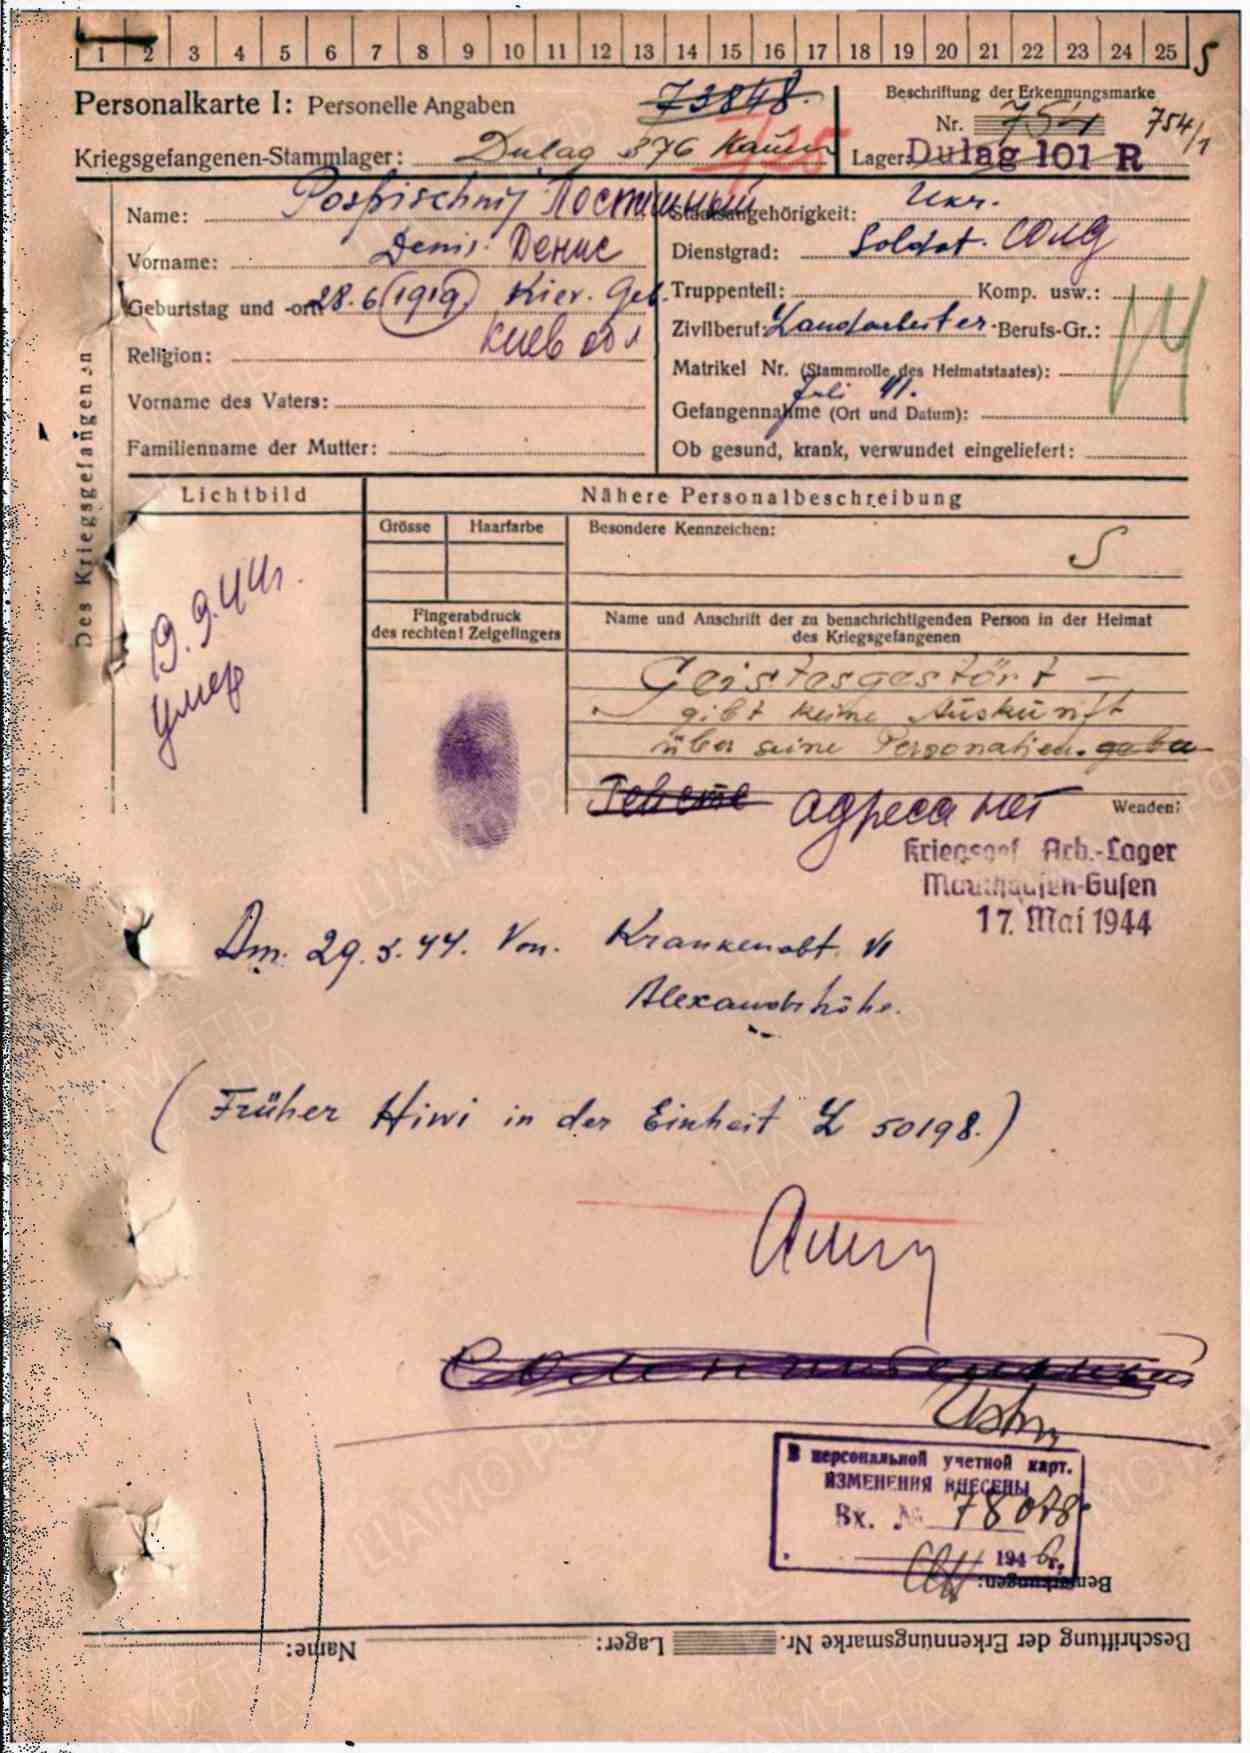 1 2 3 4 5 6 7 8 9 10 11 12 13 14 15 16 17 18 19 20 21 22 23 24 25 S
Personalkarte I: Personelle Angaben 73848.
Beschriftung der Erkennungsmarke
Nr. 754 754/1
Kriegsgefangenen-Stammlager: Dulag 376 Kauen
Lager: Dulag 101 R
Des Kriegsgefangenen
Name: Pospischnij Постишный
Staatsangehörigkeit: Ukr.
Vorname: Denis. Денис
Dienstgrad: Soldat. солд
Geburtstag und -ort: 28.6 1919 Kier. Geb.
Truppenteil: Komp. usw.:
Киев обл
Zivilberuf: Landarbeiter. Berufs-Gr.:
Religion:
Matrikel Nr. (Stammrolle des Heimatstaates):
Juli 41.
Vorname des Vaters:
Gefangennahme (Ort und Datum):
Familienname der Mutter:
Ob gesund, krank, verwundet eingeliefert:
Lichtbild
Nähere Personalbeschreibung
Grösse Haarfarbe Besondere Kennzeichen:
19.9.44г.
умер
Fingerabdruck
des rechten! Zeigefingers
Name und Anschrift der zu benachrichtigenden Person in der Heimat
des Kriegsgefangenen
Geistesgestört -
gibt keine Auskunft
über seine Personalien.
адреса нет
Wenden!
Kriegsgef. Arb.-Lager
Mauthausen-Gusen
17. Mai 1944
Am. 29.5.44. Von. Krankenabt. VI
Alexandrshöhe.
(Früher Hiwi in der Einheit L 50198.)
В персональной учетной карт.
ИЗМЕНЕНИЯ ВНЕСЕНЫ
Вх. № 78078
1946 г.
Bemerkungen:
Beschriftung der Erkennungsmarke Nr. Lager: Name:
ПАМЯТЬ
НАРОДА
ЦАМО РФ